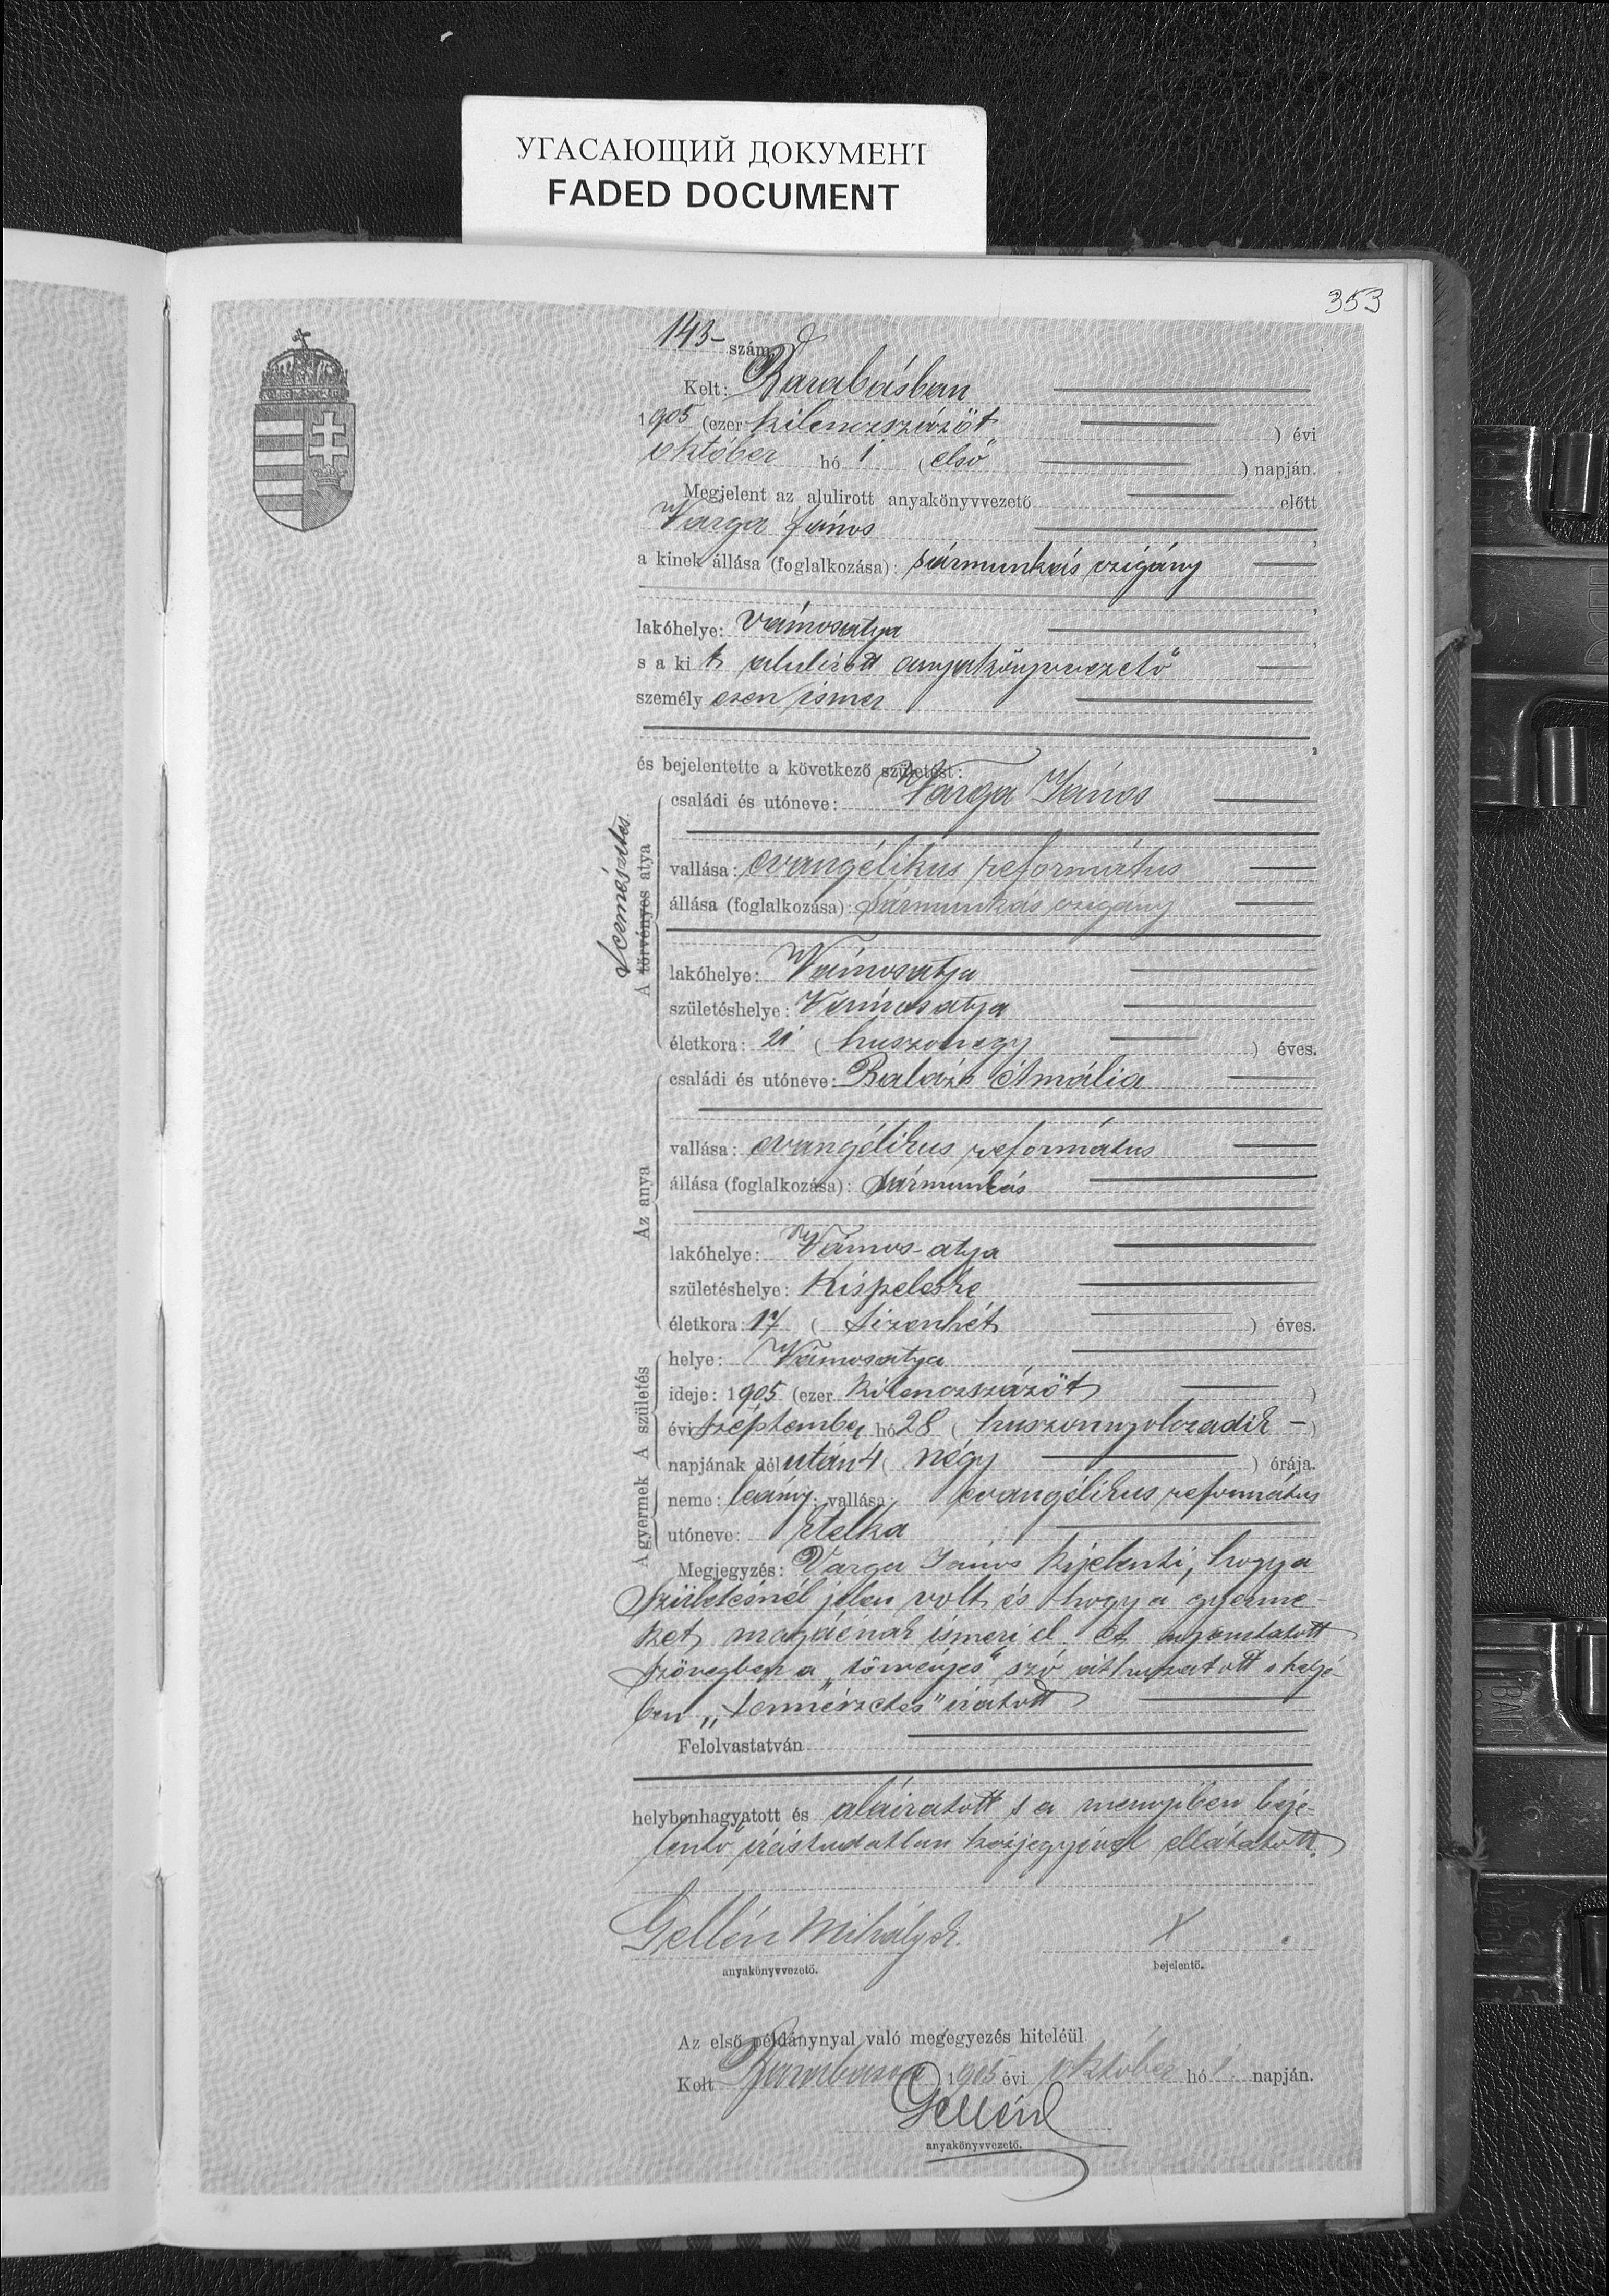 УГАСАЮЩИЙ ДОКУМЕНТ
FADED DOCUMENT
353
143 szám.
Kelt: Barabásban
1905 (ezer kilenczszázöt ) évi
október hó 1 (első ) napján.
Megjelent az alulirott anyakönyvvezető előtt
Varga János ,
a kinek állása (foglalkozása): sármunkás czigány
,
lakóhelye: Vámosatya ,
s a kit alulirott anyakönyvvezető
személyesen ismer
,
és bejelentette a következő születést:
A törvényes atya
természetes
családi és utóneve: Varga János
vallása: evangélikus református
állása (foglalkozása): sármunkás czigány
lakóhelye: Vámosatya
születéshelye: Vámosatya
életkora: 21 (huszonegy ) éves.
Az anya
családi és utóneve: Balázs Amália
vallása: evangélikus református
állása (foglalkozása): sármunkás
lakóhelye: Vámos-atya
születéshelye: Kispeleske
életkora: 17 (tizenhét ) éves.
A születés
helye: Vámosatya
ideje: 1905 (ezer kilenczszázöt )
évi szeptember hó 28 (huszonnyolczadik )
napjának délután 4 (négy ) órája.
A gyermek
neme: leány; vallása: evangélikus református
utóneve: Etelka
Megjegyzés: Varga János kijelenti, hogy a
születésnél jelen volt és hogy a gyerme-
ket magáénak ismeri el. A nyomtatott
szövegben a „törvényes" szó áthuzatott s helyé-
ben „természetes" iratott
Felolvastatván
helybenhagyatott és aláiratott s a mennyiben beje-
lentő irástudatlan kézjegyével ellátatott.
Gellén Mihály X
anyakönyvvezető. bejelentő.
Az első példánynyal való megegyezés hiteléül.
Kelt Barabáson 1905 évi október hó 1 napján.
Gellén
anyakönyvvezető.